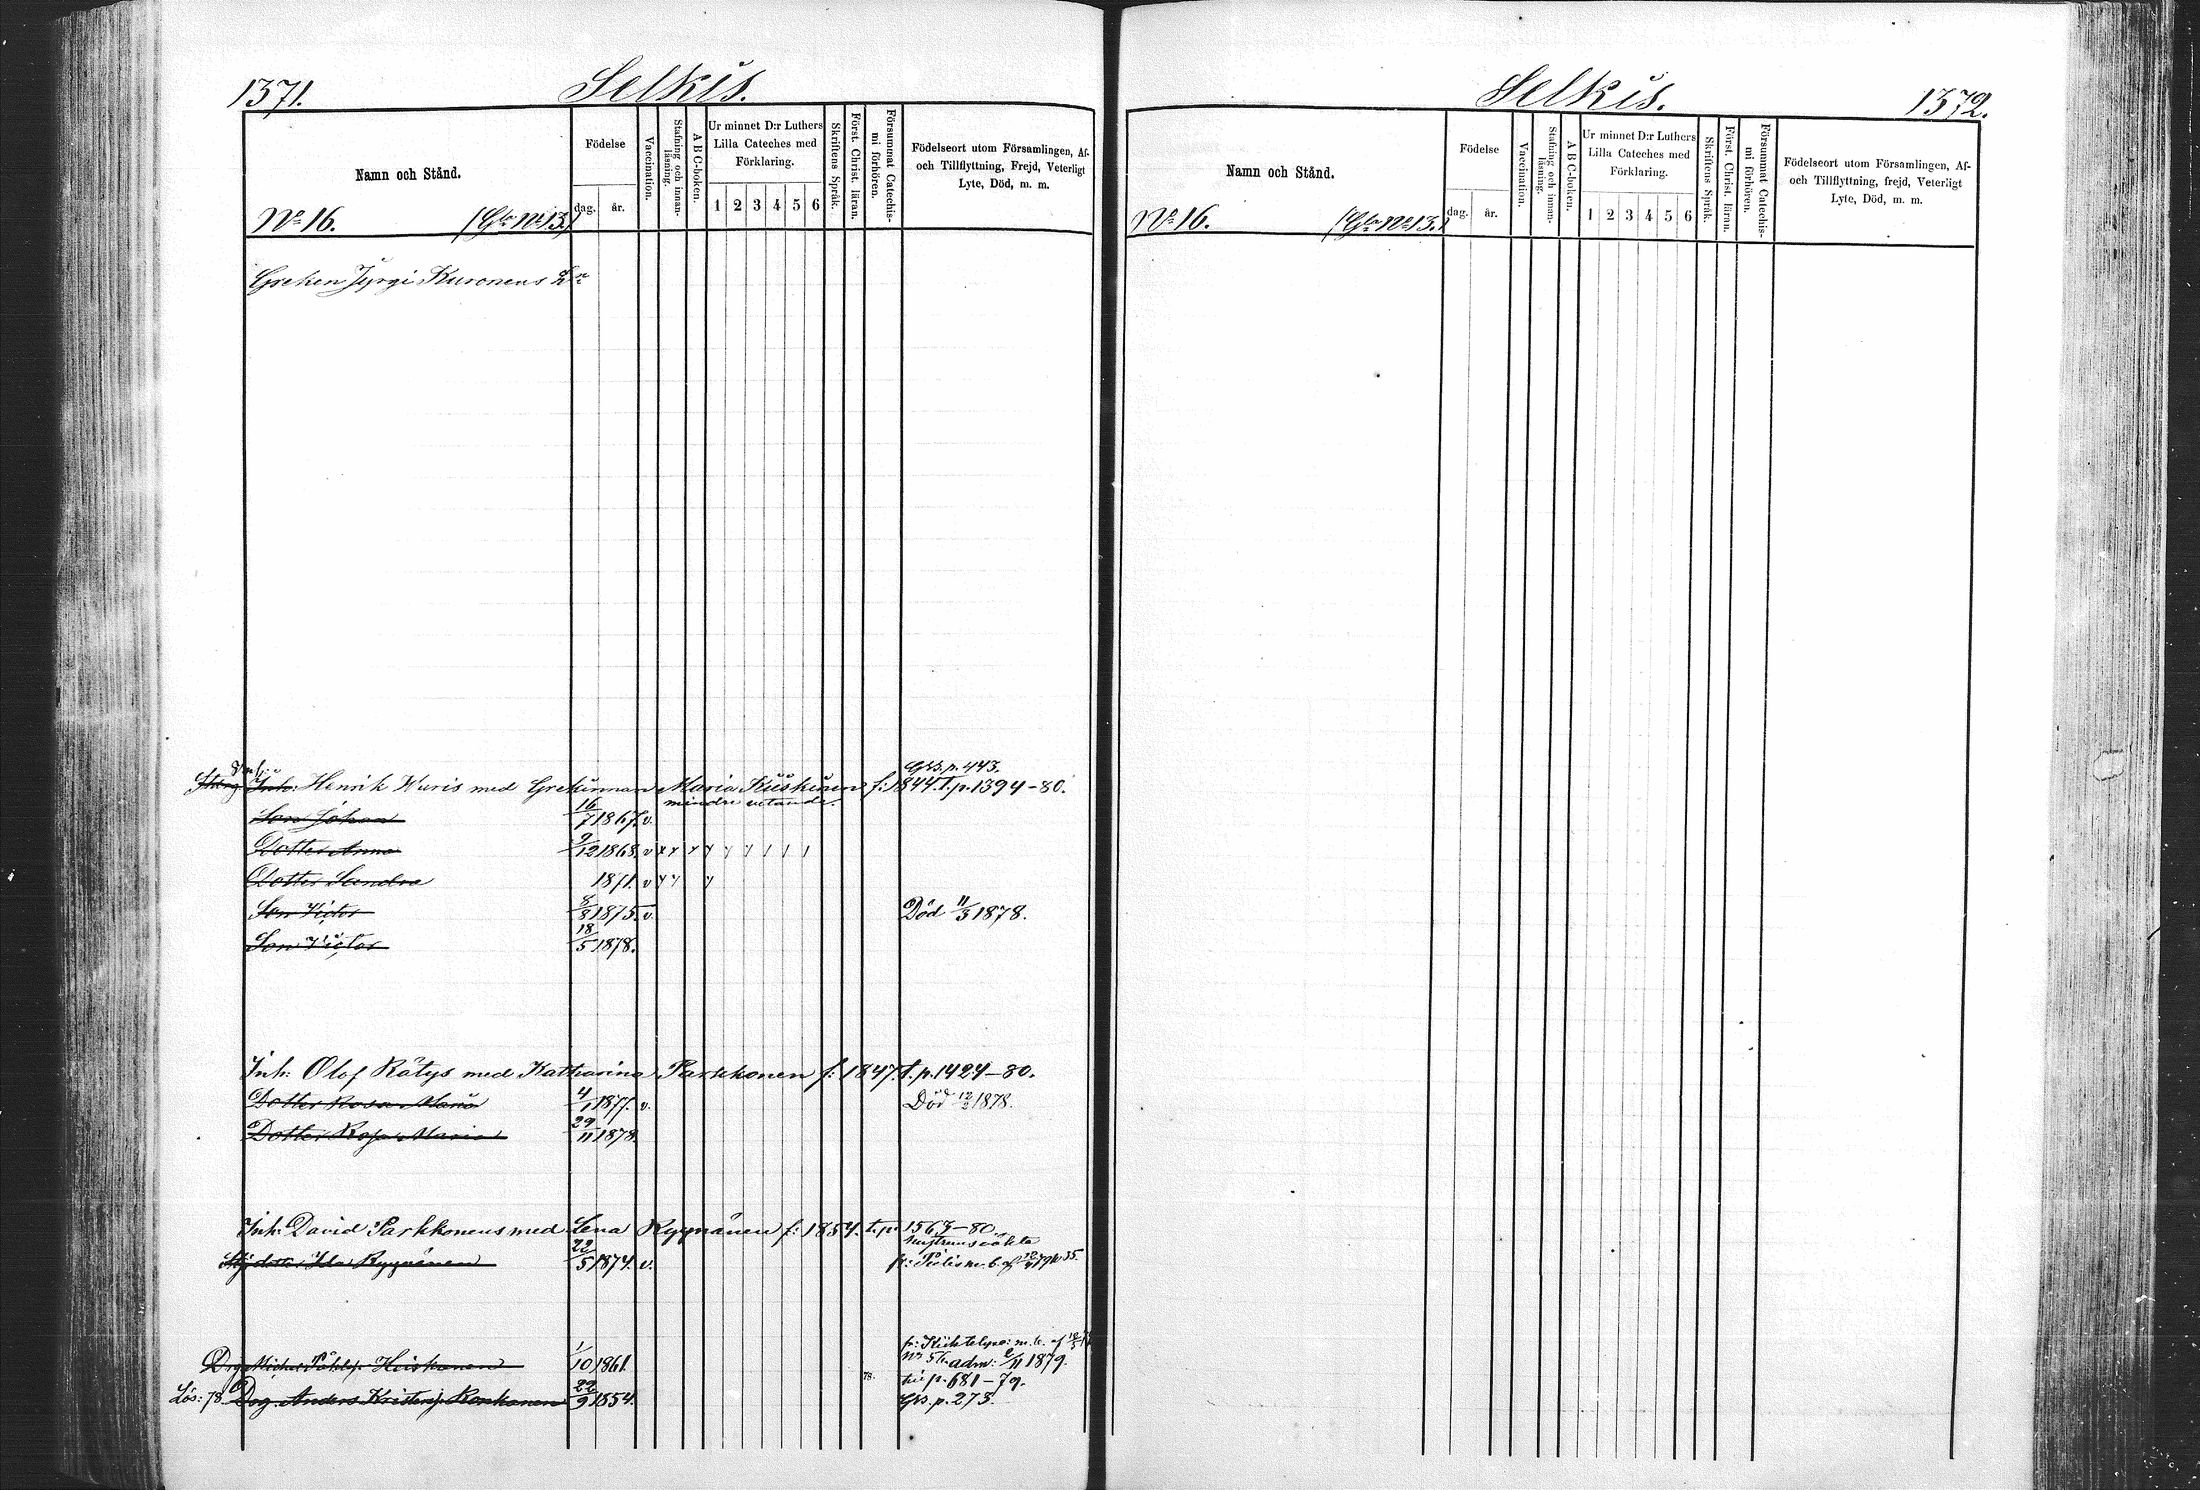 1371.
Selkis.
Namn och Stånd.
Födelse
dag. år.
Vaccination.
Stafning och innan-läsning.
A B C-boken.
Ur minnet D:r Luthers
Lilla Cateches med
Förklaring.
1 2 3 4 5 6
Skriftens Språk.
Först. Christ. läran.
Försummat Catechis-
mi förhören.
Födelseort utom Församlingen, Af-
och Tillflyttning, Frejd, Veterligt
Lyte, Död, m. m.
No 16. (Gla No 13.)
Greken Jyrgi Kuronens
Gbs. p. 443.
Inh: Henrik Wuris med Grekinnan Maria Kiiskinen f: 1844. T. p. 1394-80.
mindre vetande.
Son Johan 16/7 1867. v.
Dotter Anna 9/12 1868. v
Dotter Sandra 1871. v
Son Victor 8/8 1875. v. Död 11/3 1878.
Son Victor 18/5 1878.
Inh: Olof Rätys med Katharina Parkkonen f: 1847. t. p. 1424-80.
Dotter Rosa Maria 4/1 1877. v. Död 12/2 1878.
Dotter Rosa Maria 29/11 1878.
Inh: David Parkkonens med Lena Ryynänen f: 1854. t. p. 1563-80.
hustruns oäkta
Styfdotter Ida Ryynänen 22/5 1874. v.
Drg Michel Heiskanen 1/10 1861.
adm: 2/11 1879.
p. 681-79.
Lös: 78 Drg Anders Kristersp. Korhonen 22/9 1854. 78. Gbs. p. 273.
Selkis.
1372.
Namn och Stånd.
Födelse
dag. år.
Vaccination.
Stafning och innan-läsning.
A B C-boken.
Ur minnet D:r Luthers
Lilla Cateches med
Förklaring.
1 2 3 4 5 6
Skriftens Språk.
Först. Christ. läran.
Försummat Catechis-
mi förhören.
Födelseort utom Församlingen, Af-
och Tillflyttning, frejd, Veterligt
Lyte, Död, m. m.
No 16. (Gla No 13.)